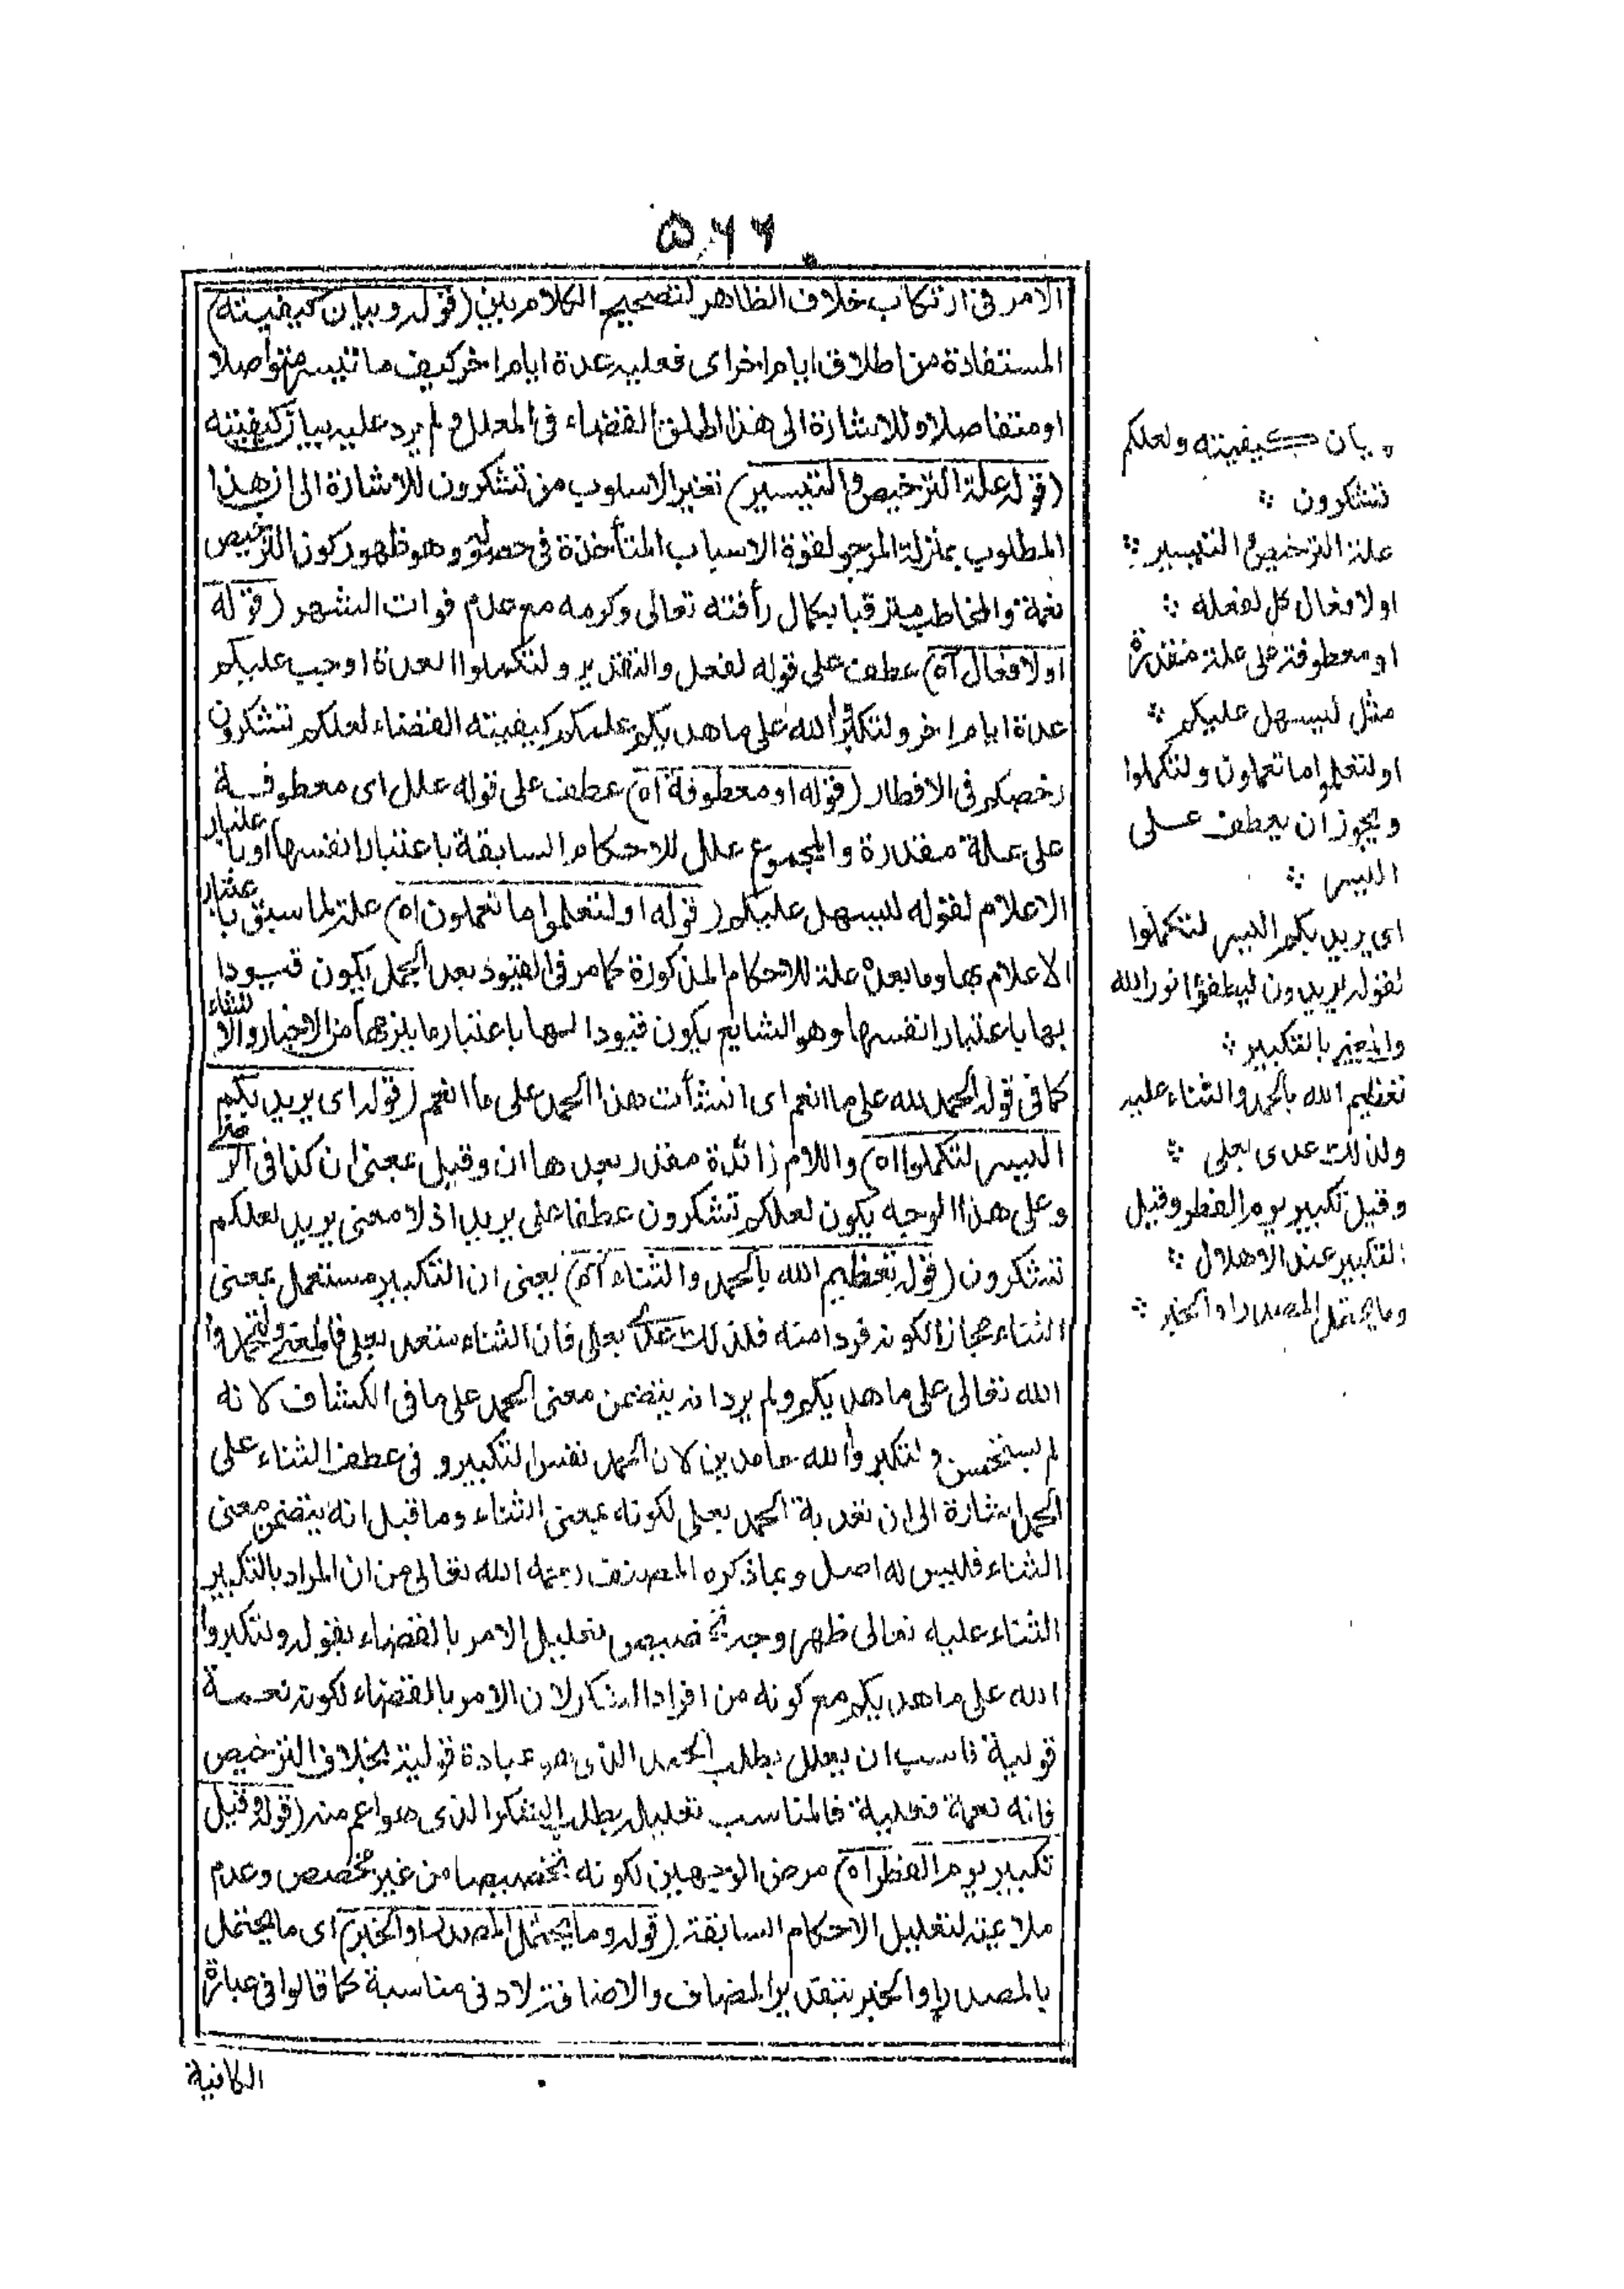 ٥٦٦
الامر فى ارتكاب خلاف الظاهر لتصحيح الكلامين (قوله وبيان كيفيته)
المستفادة من اطلاق ايام اخر اى فعليه عدة ايام اخر كيف ما تيسر متواصلا
او متفاصلا وللاشارة الى هذا اطلق القضاء فى المعلل ولم يرد عليه بيان كيفيته
(قوله علة الترخيص والتيسير) تغير الاسلوب من تشكرون للاشارة الى ان هذا
المطلوب بمنزلة المرجو لقوة الاسباب المتأخذة فى حصوله وهو ظهور كون الترخيص
نعمة والمخاطب مترقبا بكمال رأفته تعالى وكرمه مع عدم فوات الشهر (قوله
او لافعال آه) عطف على قوله لفعل والتقدير ولتكملوا العدة اوجب عليكم
عدة ايام اخر ولتكبروا الله على ما هديكم علمكم كيفيته القضاء لعلكم تشكرون
رخصكم فى الافطار (قوله او معطوفة آه) عطف على قوله علل اى معطوفة
على علة مقدرة والمجموع علل للاحكام السابقة باعتبار انفسها او باعتبار
الاعلام لقوله ليسهل عليكم (قوله او لتعلموا ما تعملون آه) علة لما سبق باعتبار
الاعلام بها وما بعده علة للاحكام المذكورة كما مر فى القيود بعد الجمل يكون قيودا
بها باعتبار انفسها وهو الشايع يكون قيودا لها باعتبار ما يلزمها من الاخبار والانشاء
كما فى قوله الحمد لله على ما انعم اى انشأت هذا الحمد على ما انعم (قوله اى يريد بكم
اليسر لتكملوا آه) واللام زائدة مقدر بعدها ان وقيل بمعنى ان كذا فى
وعلى هذا الوجه يكون لعلكم تشكرون عطفا على يريد اذ لا معنى يريد لعلكم
تشكرون (قوله تعظيم الله بالحمد والثناء آه) يعنى ان التكبير مستعمل بمعنى
الثناء مجازا لكونه فردا منه فلذلك عدى بعلى فان الثناء متعد بعلى فالمعنى ولتحمدوا
الله تعالى على ما هديكم ولم يرد انه يتضمن معنى الحمد على ما فى الكشاف لانه
لم يستحسن ولتكبروا الله حامدين لان الحمد نفس التكبير وفى عطف الثناء على
الحمد اشارة الى ان تعدية الحمد بعلى لكونه بمعنى الثناء وما قيل انه يتضمن معنى
الثناء فليس له اصل وبما ذكره المصنف رحمه الله تعالى من ان المراد بالتكبير
الثناء عليه تعالى ظهر وجه تخصيص تعليل الامر بالقضاء بقوله ولتكبروا
الله على ما هديكم مع كونه من افراد الشكر لان الامر بالقضاء لكونه نعمة
قولية ناسب ان يعلل بطلب الحمد الذى هو عبادة قولية بخلاف الترخيص
فانه نعمة فعلية فالمناسب تعليله بطلب الشكر الذى هو اعم منه (قوله وقيل
تكبير يوم الفطر آه) مرض الوجهين لكونه تخصيصا من غير مخصص وعدم
ملاءمته لتعليل الاحكام السابقة (قوله وما يحتمل المصدر او الخبر) اى ما يحتمل
بالمصدر او الخبر بتقدير المضاف والاضافة لادنى مناسبة كما قالوا فى عبارة
الكافية
بيان كيفيته ولعلكم
تشكرون
علة الترخيص والتيسير
او لافعال كل لفعله
او معطوفة على علة مقدرة
مثل ليسهل عليكم
او لتعلموا ما تعملون ولتكملوا
ويجوز ان يعطف على
اليسر
اى يريد بكم اليسر لتكملوا
لقوله يريدون ليطفؤا نور الله
والمعنى بالتكبير
تعظيم الله بالحمد والثناء عليه
ولذلك عدى بعلى
وقيل تكبير يوم الفطر وقيل
التكبير عند الاهلال
وما يحتمل المصدر او الخبر